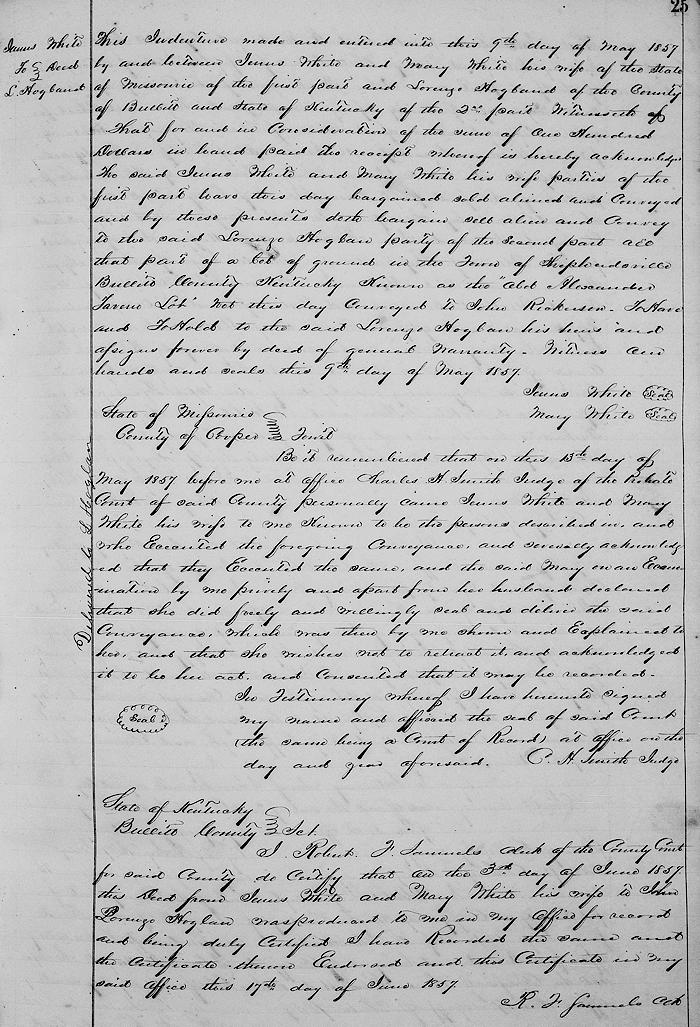 25
James White
To } Deed
L. Hogland
This Indenture made and entered into this 9th day of May 1857
by and between James White and Mary White his wife of the State
of Missourie of the first part and Lorenzo Hogland of the County
of Bullitt and State of Kentucky of the 2nd part Witnesseth
That for and in Consideration of the sum of One Hundred
Dollars in hand paid the receipt whereof is hereby acknowledge
The said James White and Mary White his wife parties of the
first part have this day bargained sold aliened and Conveyed
and by these presents doth bargain sell alien and Convey
to the said Lorenzo Hoglan party of the second part all
that part of a Lot of ground in the Town of Shepherdsville
Bullitt County Kentucky Known as the "Old Alexander
Tavern Lot" Not this day Conveyed to John Rickerson. To Have
and To Hold to the said Lorenzo Hoglan his heirs and
assigns forever by deed of general Warranty. Witness our
hands and seals this 9th day of May 1857.
James White Seal
Mary White Seal
State of Missourie
County of Cooper } Towit
Be it remembered that on this 13th day of
May 1857 before me at office Charles H Smith Judge of the Probate
Court of said County personally came James White and Mary
White his wife to me Known to be the persons described in, and
who Executed the foregoing Conveyance, and severally acknowledg
ed that they Executed the same, and the said Mary on an Exam
ination by me privily and apart from her husband declared
that she did freely and willingly seal and deliver the said
Conveyance, which was then by me shown and Explained to
her, and that she wishes not to retract it and acknowledged
it to be her act, and Consented that it may be recorded.
In Testimony whereof I have hereunto signed
my name and affixed the seal of said Court
(the same being a Court of Record) at office on the
day and year aforesaid. C. H. Smith Judge
Seal
Delivered to L Hoglan
State of Kentucky
Bullitt County } Sct.
I, Robert F. Samuels clerk of the County Court
for said County do Certify that on the 3rd day of June 1857
this Deed from James White and Mary White his wife to John
Lorenzo Hoglan was produced to me in my Office for record
and being duly Certified I have Recorded the same and
the Certificate thereon Endorsed and this Certificate in my
said Office this 17th day of June 1857.
R. F. Samuels Clk